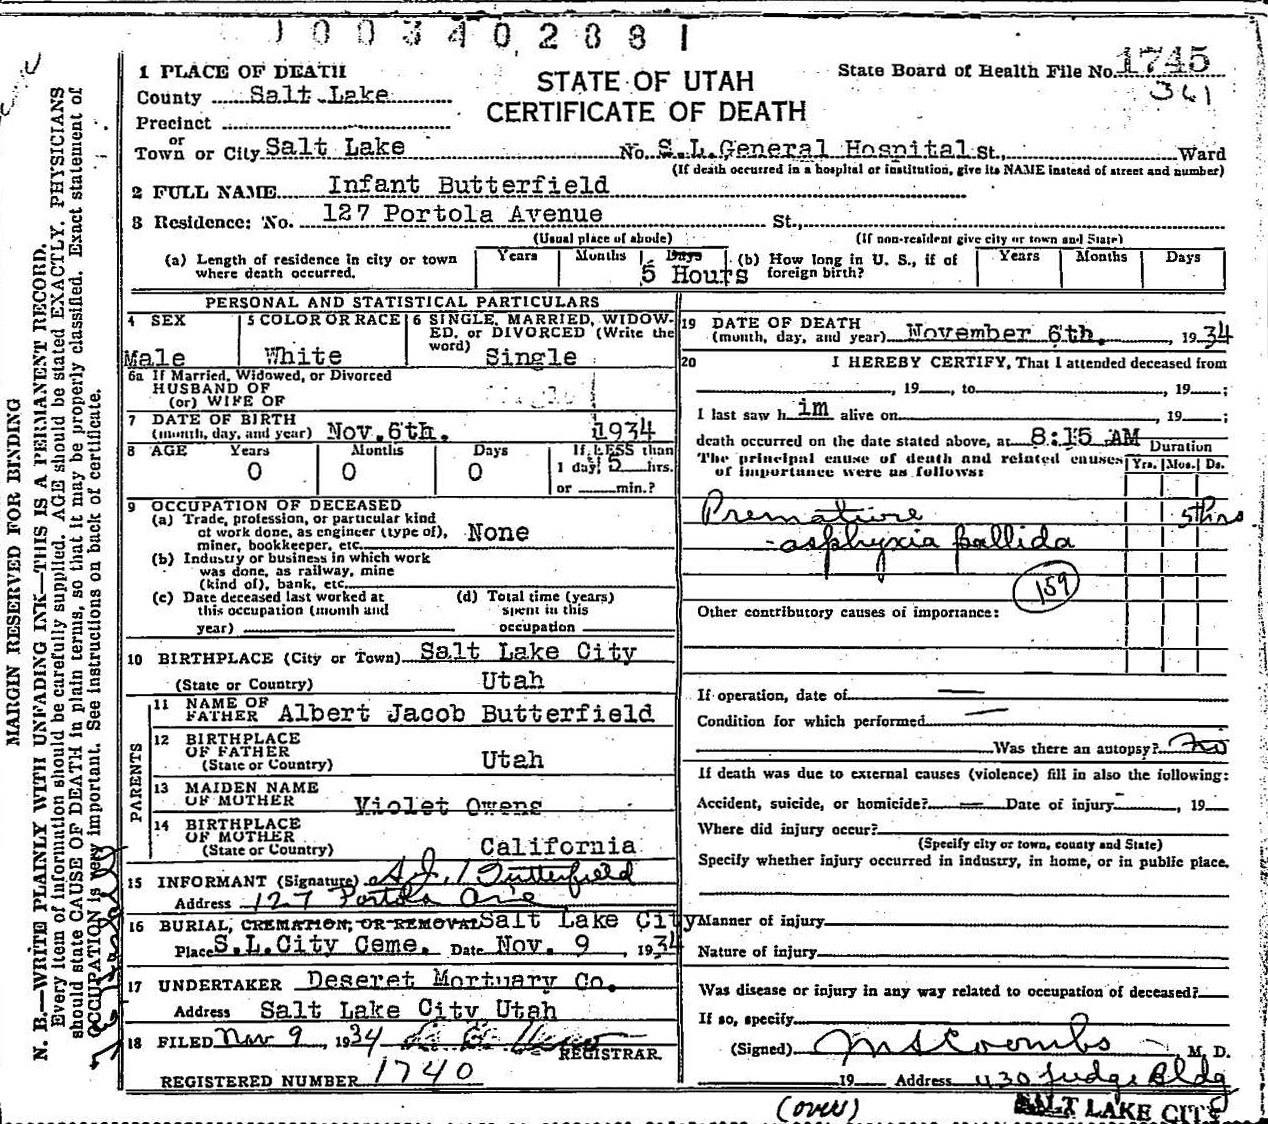 1003402881
1 PLACE OF DEATH
County Salt Lake
Precinct
or
Town or City Salt Lake No. S.L.General Hospital St., Ward
(If death occurred in a hospital or institution, give its NAME instead of street and number)
STATE OF UTAH
CERTIFICATE OF DEATH
State Board of Health File No. 1745
361
2 FULL NAME Infant Butterfield
3 Residence: No. 127 Portola Avenue St.,
(Usual place of abode) (If non-resident give city or town and State)
(a) Length of residence in city or town where death occurred. Years Months Days 5 Hours
(b) How long in U. S., if of foreign birth? Years Months Days
PERSONAL AND STATISTICAL PARTICULARS
4 SEX Male
5 COLOR OR RACE White
6 SINGLE, MARRIED, WIDOWED, or DIVORCED (Write the word) Single
6a If Married, Widowed, or Divorced
HUSBAND OF
(or) WIFE OF
7 DATE OF BIRTH
(month, day, and year) Nov.6th. 1934
8 AGE Years Months Days If LESS than
0 0 0 1 day, 5 hrs.
or min.?
9 OCCUPATION OF DECEASED
(a) Trade, profession, or particular kind
of work done, as engineer (type of),
miner, bookkeeper, etc. None
(b) Industry or business in which work
was done, as railway, mine
(kind of), bank, etc.
(c) Date deceased last worked at
this occupation (month and
year)
(d) Total time (years)
spent in this
occupation
10 BIRTHPLACE (City or Town) Salt Lake City
(State or Country) Utah
PARENTS
11 NAME OF
FATHER Albert Jacob Butterfield
12 BIRTHPLACE
OF FATHER
(State or Country) Utah
13 MAIDEN NAME
OF MOTHER Violet Owens
14 BIRTHPLACE
OF MOTHER
(State or Country) California
15 INFORMANT (Signature) A.J. Butterfield
Address 127 Portola Ave
16 BURIAL, CREMATION, OR REMOVAL Salt Lake City
Place S.L.City Ceme. Date Nov. 9, 1934
17 UNDERTAKER Deseret Mortuary Co.
Address Salt Lake City Utah
18 FILED Nov 9, 1934
REGISTRAR
REGISTERED NUMBER 1740
19 DATE OF DEATH
(month, day, and year) November 6th., 1934
20 I HEREBY CERTIFY, That I attended deceased from
, 19 , to , 19 ;
I last saw h im alive on , 19 ;
death occurred on the date stated above, at 8:15 AM
The principal cause of death and related causes
of importance were as follows:
Duration
Yrs. Mos. Ds.
Premature 5 hrs
- asphyxia pallida
159
Other contributory causes of importance:
If operation, date of —
Condition for which performed —
Was there an autopsy? No
If death was due to external causes (violence) fill in also the following:
Accident, suicide, or homicide? — Date of injury , 19
Where did injury occur?
(Specify city or town, county and State)
Specify whether injury occurred in industry, in home, or in public place.
Manner of injury
Nature of injury
Was disease or injury in any way related to occupation of deceased?
If so, specify
(Signed) M S Coombs, M. D.
19 Address 430 Judge Bldg
SALT LAKE CITY
(over)
MARGIN RESERVED FOR BINDING
N. B.—WRITE PLAINLY WITH UNFADING INK—THIS IS A PERMANENT RECORD.
Every item of information should be carefully supplied. AGE should be stated EXACTLY. PHYSICIANS
should state CAUSE OF DEATH in plain terms, so that it may be properly classified. Exact statement of
OCCUPATION is very important. See instructions on back of certificate.